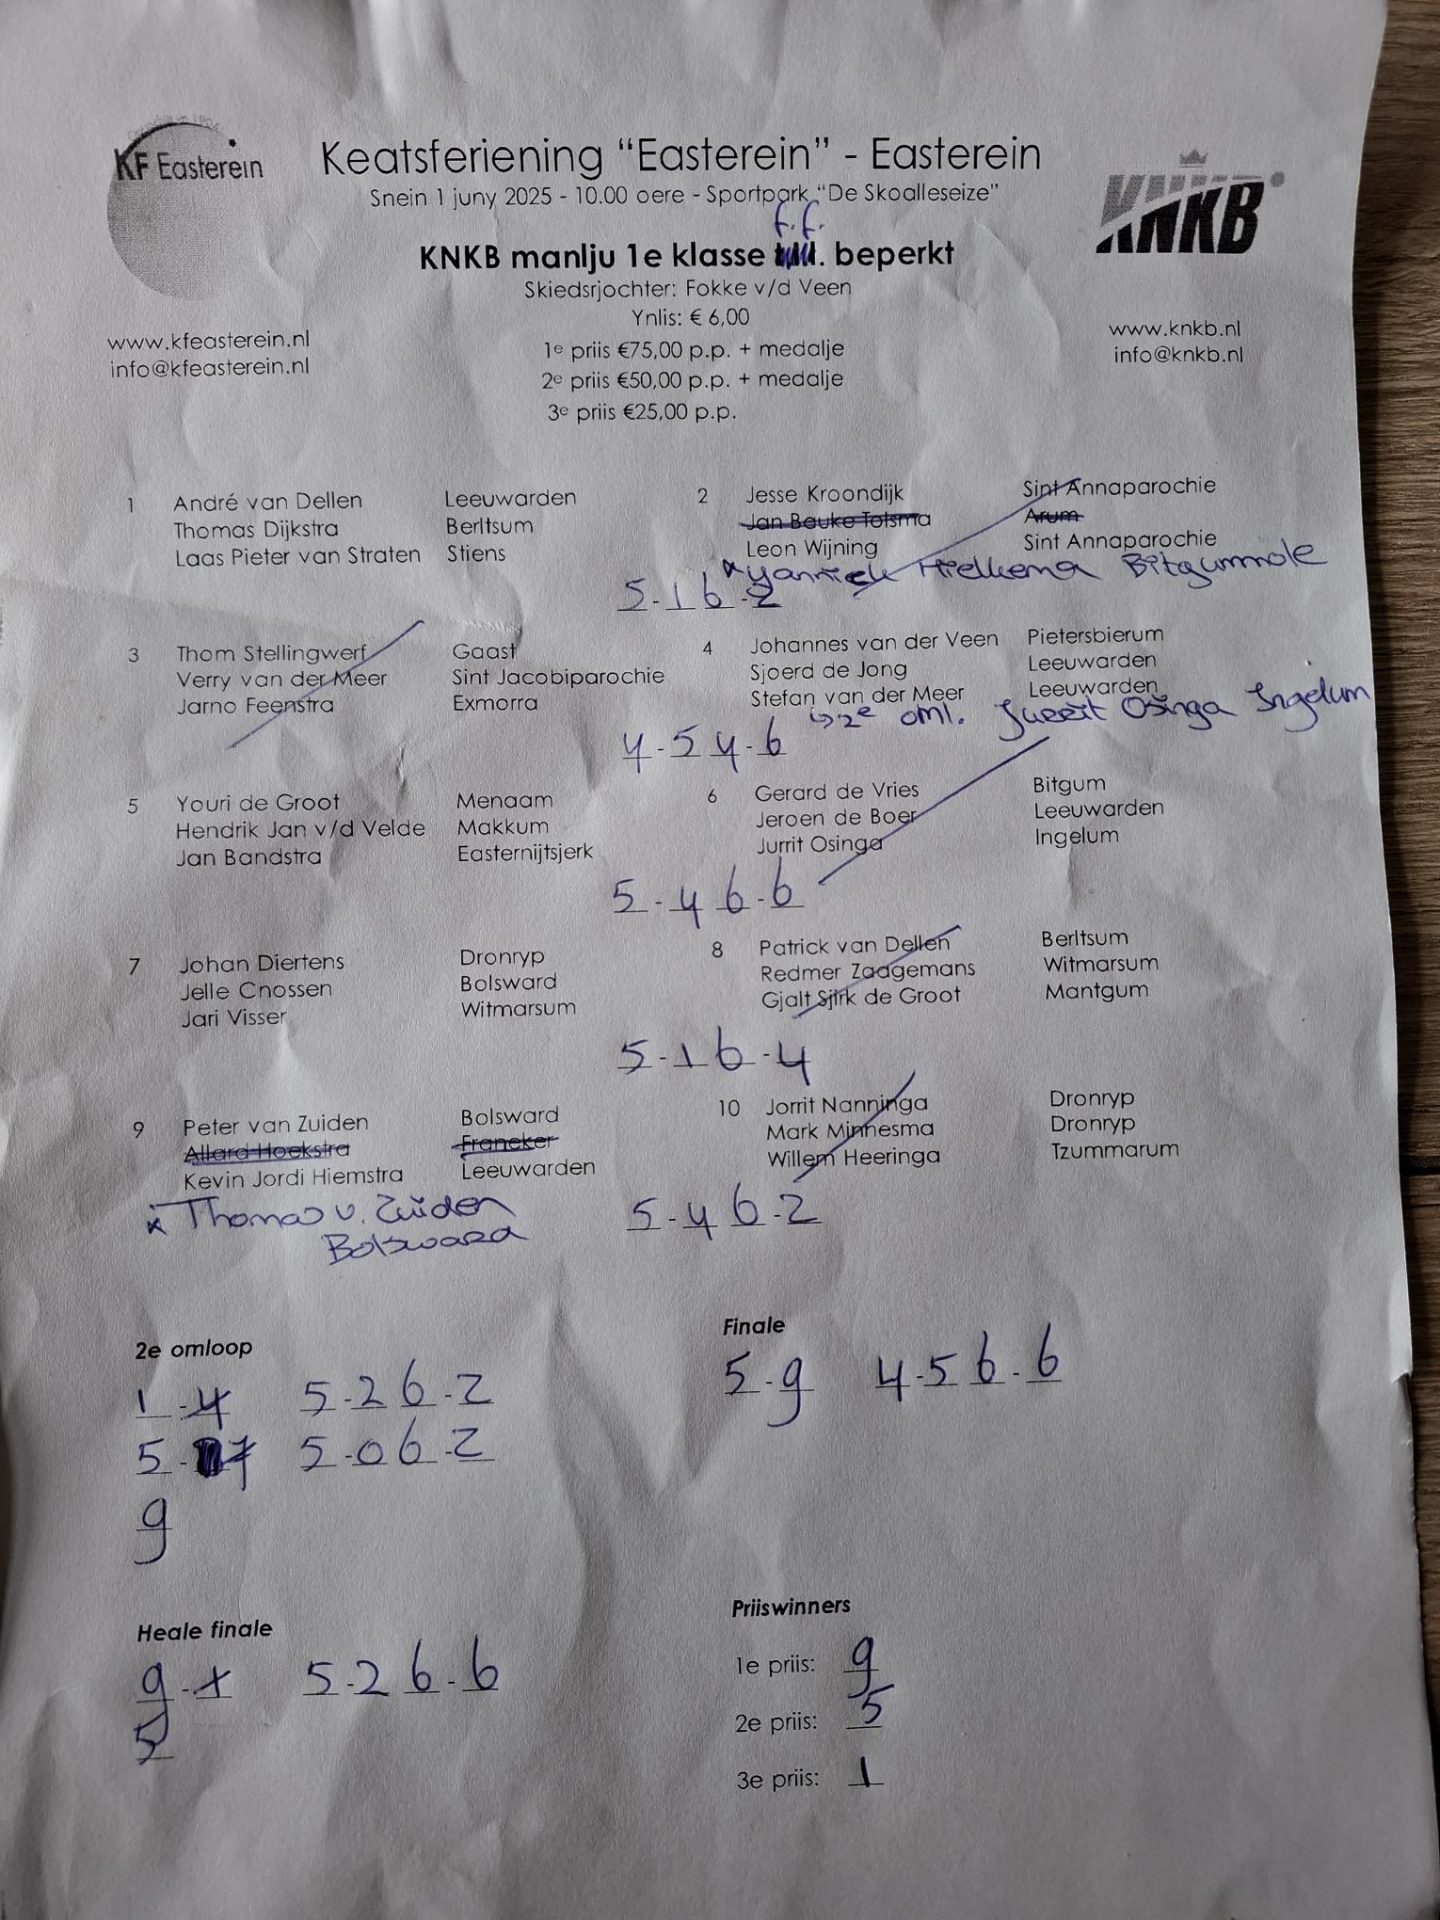 KF Easterein
Keatsferiening “Easterein” - Easterein
Snein 1 juny 2025 - 10.00 oere - Sportpark “De Skoalleseize”
KNKB
f.f.
KNKB manlju 1e klasse . beperkt
Skiedsrjochter: Fokke v/d Veen
Ynlis: € 6,00
www.kfeasterein.nl
info@kfeasterein.nl
www.knkb.nl
info@knkb.nl
1e priis €75,00 p.p. + medalje
2e priis €50,00 p.p. + medalje
3e priis €25,00 p.p.
1 André van Dellen Leeuwarden
Thomas Dijkstra Berltsum
Laas Pieter van Straten Stiens
2 Jesse Kroondijk Sint Annaparochie
Jan Bauke Tolsma Arum
Leon Wijning Sint Annaparochie
x Yannick Hielkema Bitgummole
5-1 6-2
3 Thom Stellingwerf Gaast
Verry van der Meer Sint Jacobiparochie
Jarno Feenstra Exmorra
4 Johannes van der Veen Pietersbierum
Sjoerd de Jong Leeuwarden
Stefan van der Meer Leeuwarden
↳ 2e oml. Jurrit Osinga Ingelum
4-5 4-6
5 Youri de Groot Menaam
Hendrik Jan v/d Velde Makkum
Jan Bandstra Easternijtsjerk
6 Gerard de Vries Bitgum
Jeroen de Boer Leeuwarden
Jurrit Osinga Ingelum
5-4 6-6
7 Johan Diertens Dronryp
Jelle Cnossen Bolsward
Jari Visser Witmarsum
8 Patrick van Dellen Berltsum
Redmer Zaagemans Witmarsum
Gjalt Sjirk de Groot Mantgum
5-1 6-4
9 Peter van Zuiden Bolsward
Allard Hoekstra Franeker
Kevin Jordi Hiemstra Leeuwarden
x Thomas v. Zuiden
Bolsward
10 Jorrit Nanninga Dronryp
Mark Minnesma Dronryp
Willem Heeringa Tzummarum
5-4 6-2
2e omloop
1-4 5-2 6-2
5-7 5-0 6-2
9
Finale
5-9 4-5 6-6
Heale finale
9-1 5-2 6-6
5
Priiswinners
1e priis: 9
2e priis: 5
3e priis: 1